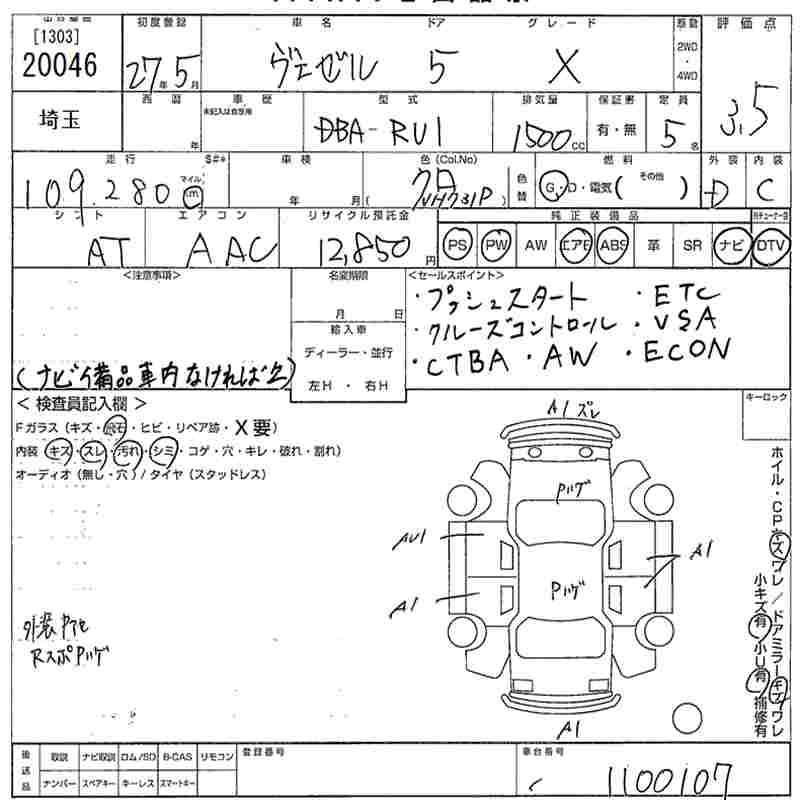 [1303]
20046
初度登録 車名 ドア グレード 駆動 評価点
27年5月 ヴェゼル 5 X 2WD・4WD 3.5
埼玉
西暦 車歴 型式 排気量 保証書 定員
年 未記入は自家用 DBA-RU1 1500cc 有・無 5名
走行 S#* 車検 色(Col.No) 色替 燃料 外装 内装
109,280 マイル km 年 月( クロ NH731P) G・D・電気( その他 ) D C
シフト エアコン リサイクル預託金 純正装備品
AT AAC 12,850円 PS PW AW エアB ABS 革 SR ナビ DTV
<注意事項> 名変期限 <セールスポイント>
月 日
・プッシュスタート ・ETC
・クルーズコントロール ・VSA
・CTBA ・AW ・ECON
輸入車
ディーラー・並行
左H ・ 右H
(ナビイ備品車内なければ欠)
<検査員記入欄> キーロック
Fガラス(キズ・飛石・ヒビ・リペア跡・X要)
内装(キズ・スレ・汚れ・シミ・コゲ・穴・キレ・破れ・割れ)
オーディオ(無し・穴)/タイヤ(スタッドレス)
A1 ズレ
Pハゲ
AU1
A1
A1
Pハゲ
A1
外装Pヤセ
RスポPハゲ
ホイル・CPキズワレ/ドアミラーキズワレ
小キズ有・小U有・補修有
後送品 取説 ナビ取説 ロム/SD B-CAS リモコン 登録番号 車台番号
ナンバー スペアキー キーレス スマートキー 1100107